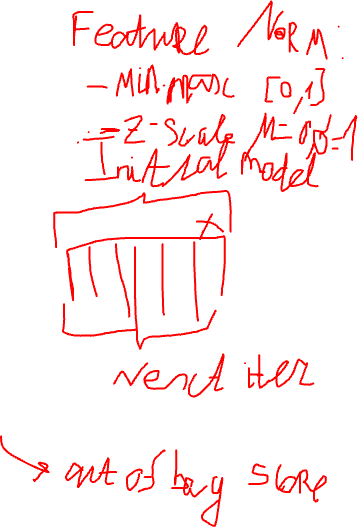 Feature Norm:
- Min.max [0,1]
- Z-Scale M=0,σ=1
Initial model
X
Next iter
out of bag score